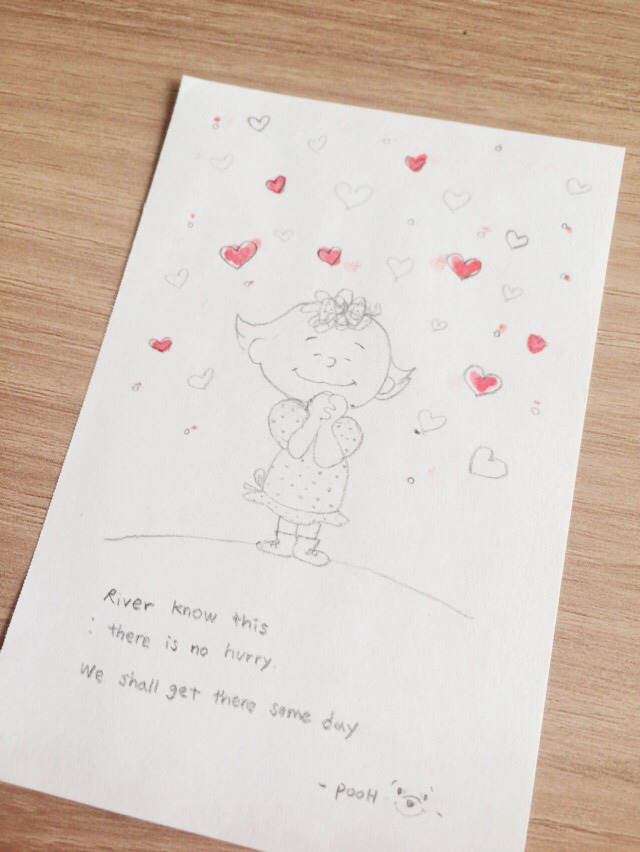 River know this
: there is no hurry.
We shall get there some day
- pooH -